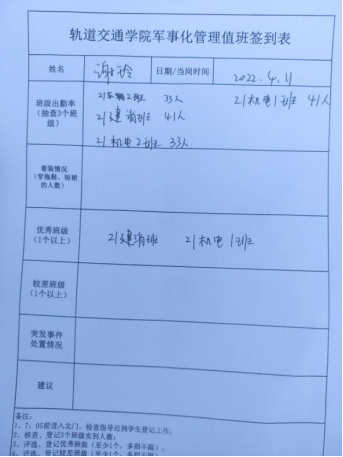 轨道交通学院军事化管理值班签到表
姓名 谢玲 日期/当岗时间 2022.4.11
班级出勤率
(抽查3个班
级)
21车辆2班 33人 21机电1班 41人
21建消班 41人
21机电2班 33人
着装情况
(穿拖鞋、短裙
的人数)
优秀班级
(1个以上)
21建消班 21机电1班
较差班级
(1个以上)
突发事件
处置情况
建议
备注:
1、7:05前进入北门,检查指导迟到学生登记工作;
2、核查、登记3个班级实到人数;
3、评选、登记优秀班级(至少1个,多则不限);
4、评选、登记较差班级(至少1个,多则不限);